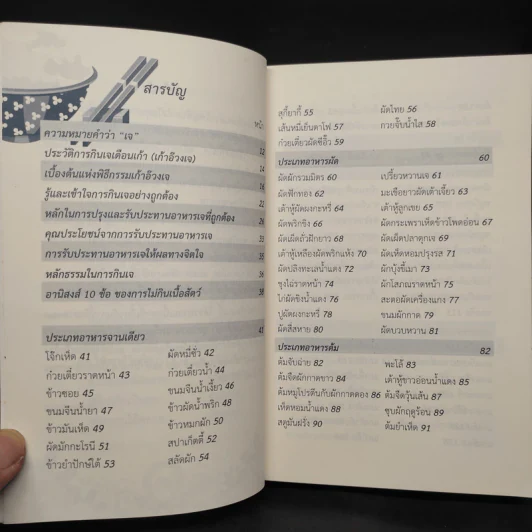 สารบัญ
หน้า
ความหมายคำว่า "เจ" 12
ประวัติการกินเจเดือนเก้า (เก้าอ๊วงเจ) 14
เบื้องต้นแห่งพิธีกรรมเก้าอ๊วงเจ
รู้และเข้าใจการกินเจอย่างถูกต้อง
หลักในการปรุงและรับประทานอาหารเจที่ถูกต้อง
คุณประโยชน์จากการรับประทานอาหารเจ
การรับประทานอาหารเจให้ผลทางจิตใจ
หลักธรรมในการกินเจ
อานิสงส์ 10 ข้อ ของการไม่กินเนื้อสัตว์
ประเภทอาหารจานเดียว
โจ๊กเห็ด 41 ผัดหมี่ซั่ว 42
ก๋วยเตี๋ยวราดหน้า 43 ก๋วยเตี๋ยวน้ำ 44
ข้าวซอย 45 ขนมจีนน้ำเงี้ยว 46
ขนมจีนน้ำยา 47 ข้าวผัดน้ำพริก 48
ข้าวมันเห็ด 49 ข้าวหมกผัก 50
ผัดมักกะโรนี 51 สปาเก็ตตี้ 52
ข้าวยำปักษ์ใต้ 53 สลัดผัก 54
สุกี้ยากี้ 55 ผัดไทย 56
เส้นหมี่เย็นตาโฟ 57 กวยจั๊บน้ำใส 58
ก๋วยเตี๋ยวผัดซีอิ๊ว 59
ประเภทอาหารผัด 60
ผัดผักรวมมิตร 60 เปรี้ยวหวานเจ 61
ผัดฟักทอง 62 มะเขือยาวผัดเต้าเจี้ยว 63
เต้าหู้ผัดผงกะหรี่ 64 เต้าหู้ลูกเขย 65
ผัดพริกขิง 66 ผัดกะเพราเห็ดข้าวโพดอ่อน 67
ผัดเผ็ดถั่วฝักยาว 68 ผัดเผ็ดปลาดุกเจ 69
เต้าหู้เหลืองผัดพริกแห้ง 70 ผัดเห็ดหอมปรุงรส 71
ผัดปลิงทะเลน้ำแดง 72 ผักบุ้งขี้เมา 73
ซุงไฉ่ราดหน้า 74 ผักโสภณราดหน้า 75
ไก่ผัดขิงน้ำแดง 76 สะตอผัดเครื่องแกง 77
ปูผัดผงกะหรี่ 78 ขนมผักกาด 79
ผัดสี่สหาย 80 ผัดบวบหวาน 81
ประเภทอาหารต้ม 82
ต้มจับฉ่าย 82 พะโล้ 83
ต้มจืดผักกาดขาว 84 เต้าหู้ขาวอ่อนน้ำแดง 85
ต้มหมูโปรตีนกับผักกาดดอง 86 ต้มจืดวุ้นเส้น 87
เห็ดหอมน้ำแดง 88 ซุบผักฤดูร้อน 89
สตูมันฝรั่ง 90 ต้มยำเห็ด 91